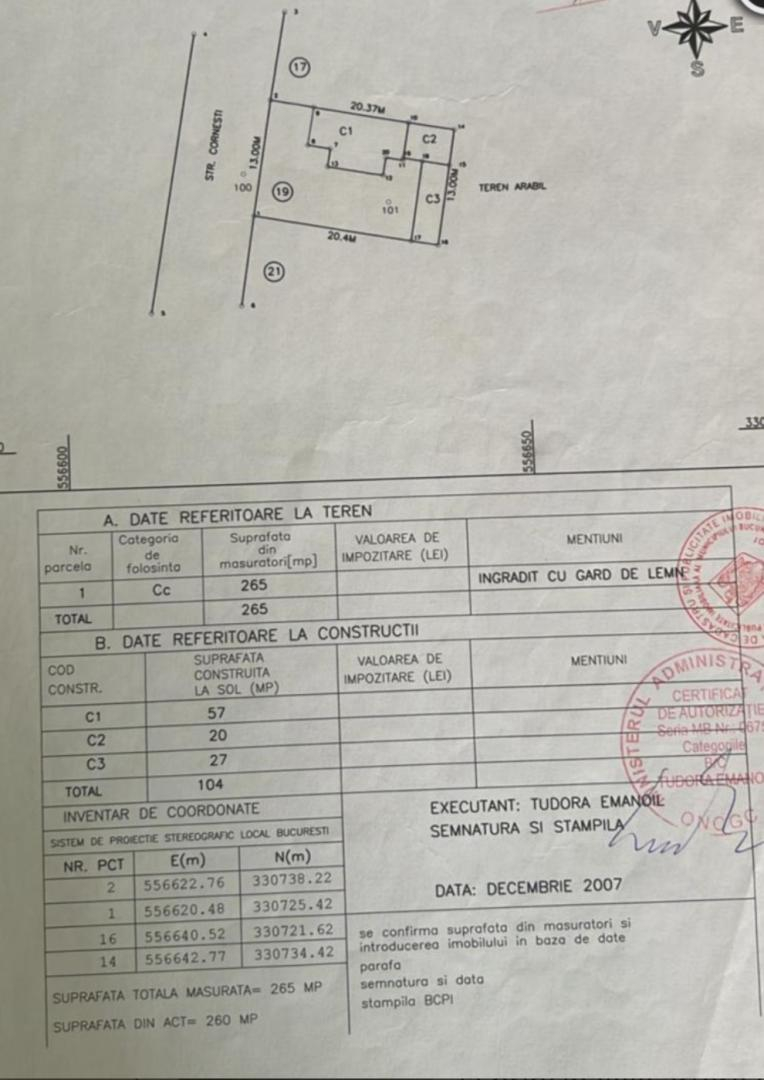 V
E
S
17
STR. CORNESTI
13.00M
20.37M
C1
C2
C3
13.00M
TEREN ARABIL
100
19
101
20.4M
21
556600
556650
330
A. DATE REFERITOARE LA TEREN
Nr. parcela
Categoria de folosinta
Suprafata din masuratori[mp]
VALOAREA DE IMPOZITARE (LEI)
MENTIUNI
1 Cc 265 INGRADIT CU GARD DE LEMN
TOTAL 265
B. DATE REFERITOARE LA CONSTRUCTII
COD CONSTR.
SUPRAFATA CONSTRUITA LA SOL (MP)
VALOAREA DE IMPOZITARE (LEI)
MENTIUNI
C1 57
C2 20
C3 27
TOTAL 104
INVENTAR DE COORDONATE
SISTEM DE PROIECTIE STEREOGRAFIC LOCAL BUCURESTI
NR. PCT E(m) N(m)
2 556622.76 330738.22
1 556620.48 330725.42
16 556640.52 330721.62
14 556642.77 330734.42
SUPRAFATA TOTALA MASURATA= 265 MP
SUPRAFATA DIN ACT= 260 MP
EXECUTANT: TUDORA EMANOIL
SEMNATURA SI STAMPILA
DATA: DECEMBRIE 2007
se confirma suprafata din masuratori si
introducerea imobilului in baza de date
parafa
semnatura si data
stampila BCPI
ADMINISTRA
CERTIFICAT
DE AUTORIZATIE
Seria MB Nr.: 0679
Categoriile
B/C
TUDORA EMANO